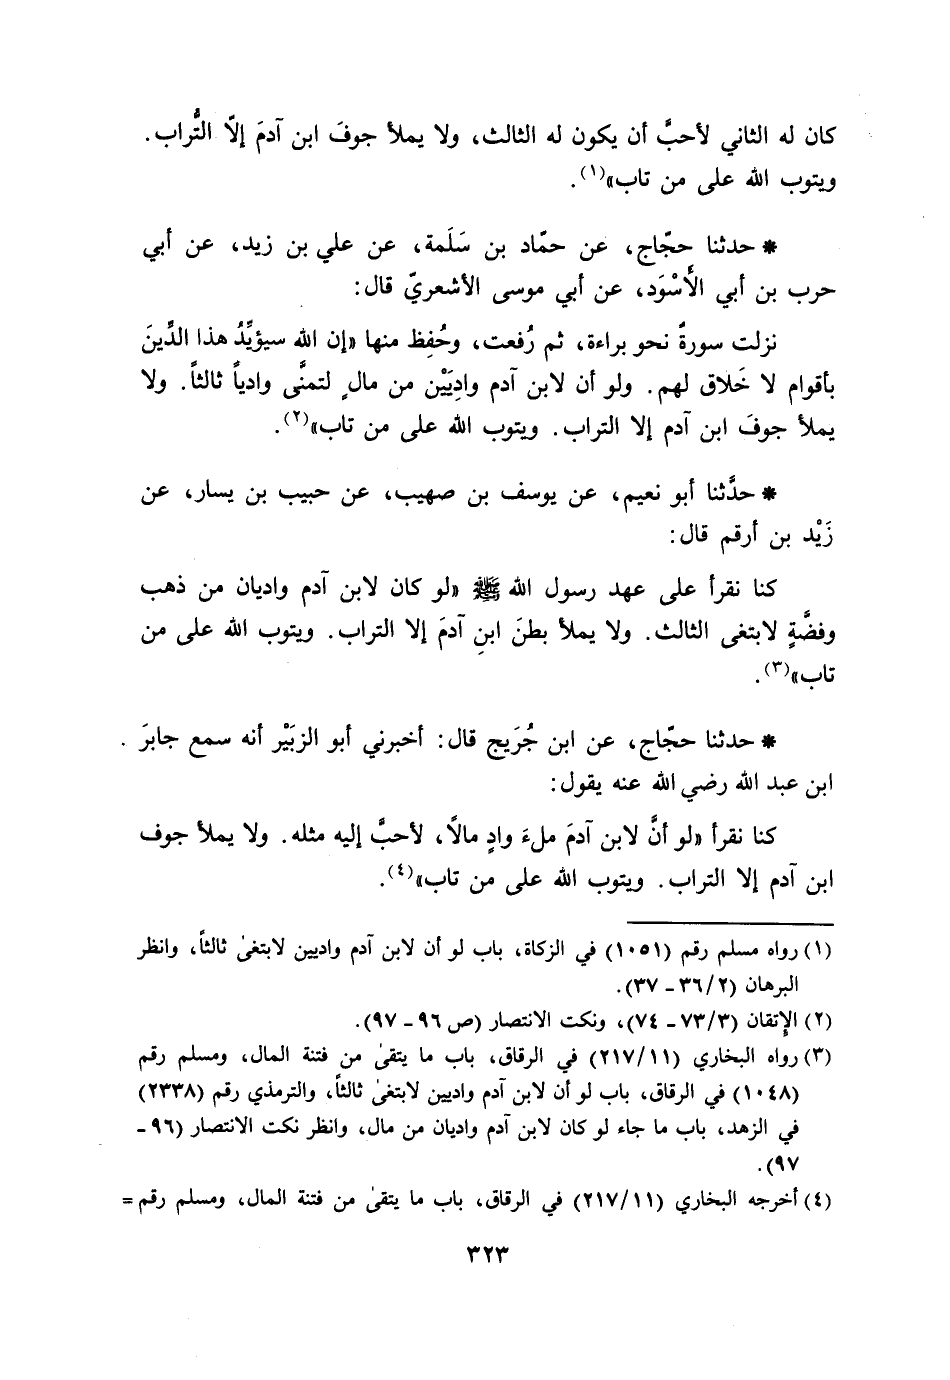 كان له الثاني لأحبَّ أن يكون له الثالث، ولا يملأ جوفَ ابن آدمَ إلّا التُّراب.
ويتوب الله على من تاب»(١).
* حدثنا حجّاج، عن حمّاد بن سَلَمة، عن علي بن زيد، عن أبي
حرب بن أبي الأَسْوَد، عن أبي موسى الأشعريّ قال:
نزلت سورةٌ نحو براءة، ثم رُفعت، وحُفِظ منها «إن الله سيؤيِّدُ هذا الدِّينَ
بأقوام لا خَلاق لهم. ولو أن لابن آدم وادِيَيْن من مالٍ لتمنَّى وادياً ثالثاً. ولا
يملأ جوفَ ابن آدم إلا التراب. ويتوب الله على من تاب»(٢).
* حدَّثنا أبو نعيم، عن يوسف بن صهيب، عن حبيب بن يسار، عن
زَيْد بن أرقم قال:
كنا نقرأ على عهد رسول الله ﷺ «لو كان لابن آدم واديان من ذهب
وفضَّةٍ لابتغى الثالث. ولا يملأ بطنَ ابنِ آدمَ إلا التراب. ويتوب الله على من
تاب»(٣).
* حدثنا حجّاج، عن ابن جُرَيج قال: أخبرني أبو الزبَيْر أنه سمع جابرَ
ابن عبد الله رضي الله عنه يقول:
كنا نقرأ «لو أنَّ لابن آدمَ ملءَ وادٍ مالًا، لأحبَّ إليه مثله. ولا يملأ جوف
ابن آدم إلا التراب. ويتوب الله على من تاب»(٤).
(١) رواه مسلم رقم (١٠٥١) في الزكاة، باب لو أن لابن آدم واديين لابتغىٰ ثالثاً، وانظر
البرهان (٣٦/٢ - ٣٧).
(٢) الإتقان (٧٣/٣ - ٧٤)، ونكت الانتصار (ص ٩٦ - ٩٧).
(٣) رواه البخاري (٢١٧/١١) في الرقاق، باب ما يتقىٰ من فتنة المال، ومسلم رقم
(١٠٤٨) في الرقاق، باب لو أن لابن آدم واديين لابتغىٰ ثالثاً، والترمذي رقم (٢٣٣٨)
في الزهد، باب ما جاء لو كان لابن آدم واديان من مال، وانظر نكت الانتصار (٩٦ -
٩٧).
(٤) أخرجه البخاري (٢١٧/١١) في الرقاق، باب ما يتقىٰ من فتنة المال، ومسلم رقم =
٣٢٣